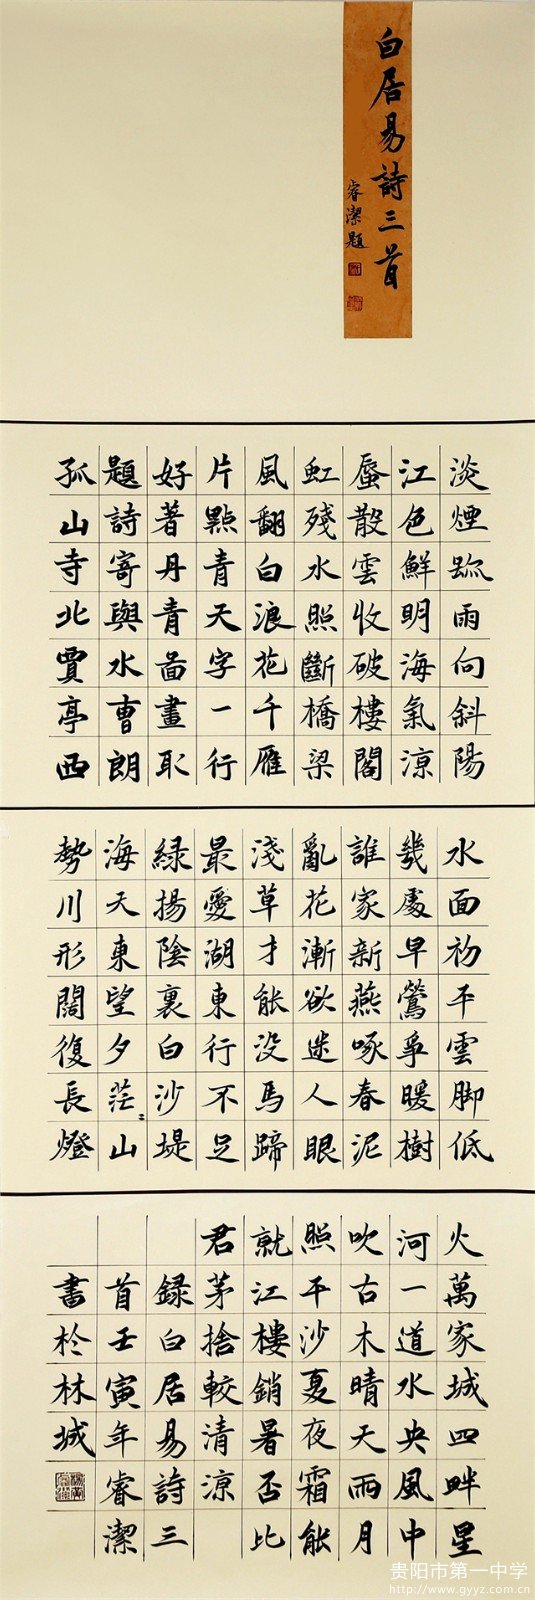 白居易詩三首
睿潔題
淡煙踈雨向斜陽
江色鮮明海氣涼
蜃散雲收破樓閣
虹殘水照斷橋梁
風翻白浪花千雁
片點青天字一行
好著丹青啚畫取
題詩寄與水曹朗
孤山寺北賈亭西
水面初平雲脚低
幾處早鶯爭暖樹
誰家新燕啄春泥
亂花漸欲迷人眼
淺草才能没馬蹄
最愛湖東行不足
緑揚陰裏白沙堤
海天東望夕茫々山
勢川形闊復長燈
火萬家城四畔星
河一道水央風中
吹古木晴天雨月
照平沙夏夜霜能
就江樓銷暑否比
君茅捨較清涼
録白居易詩三
首壬寅年睿潔
書於林城
贵阳市第一中学
http://www.gyyz.com.cn